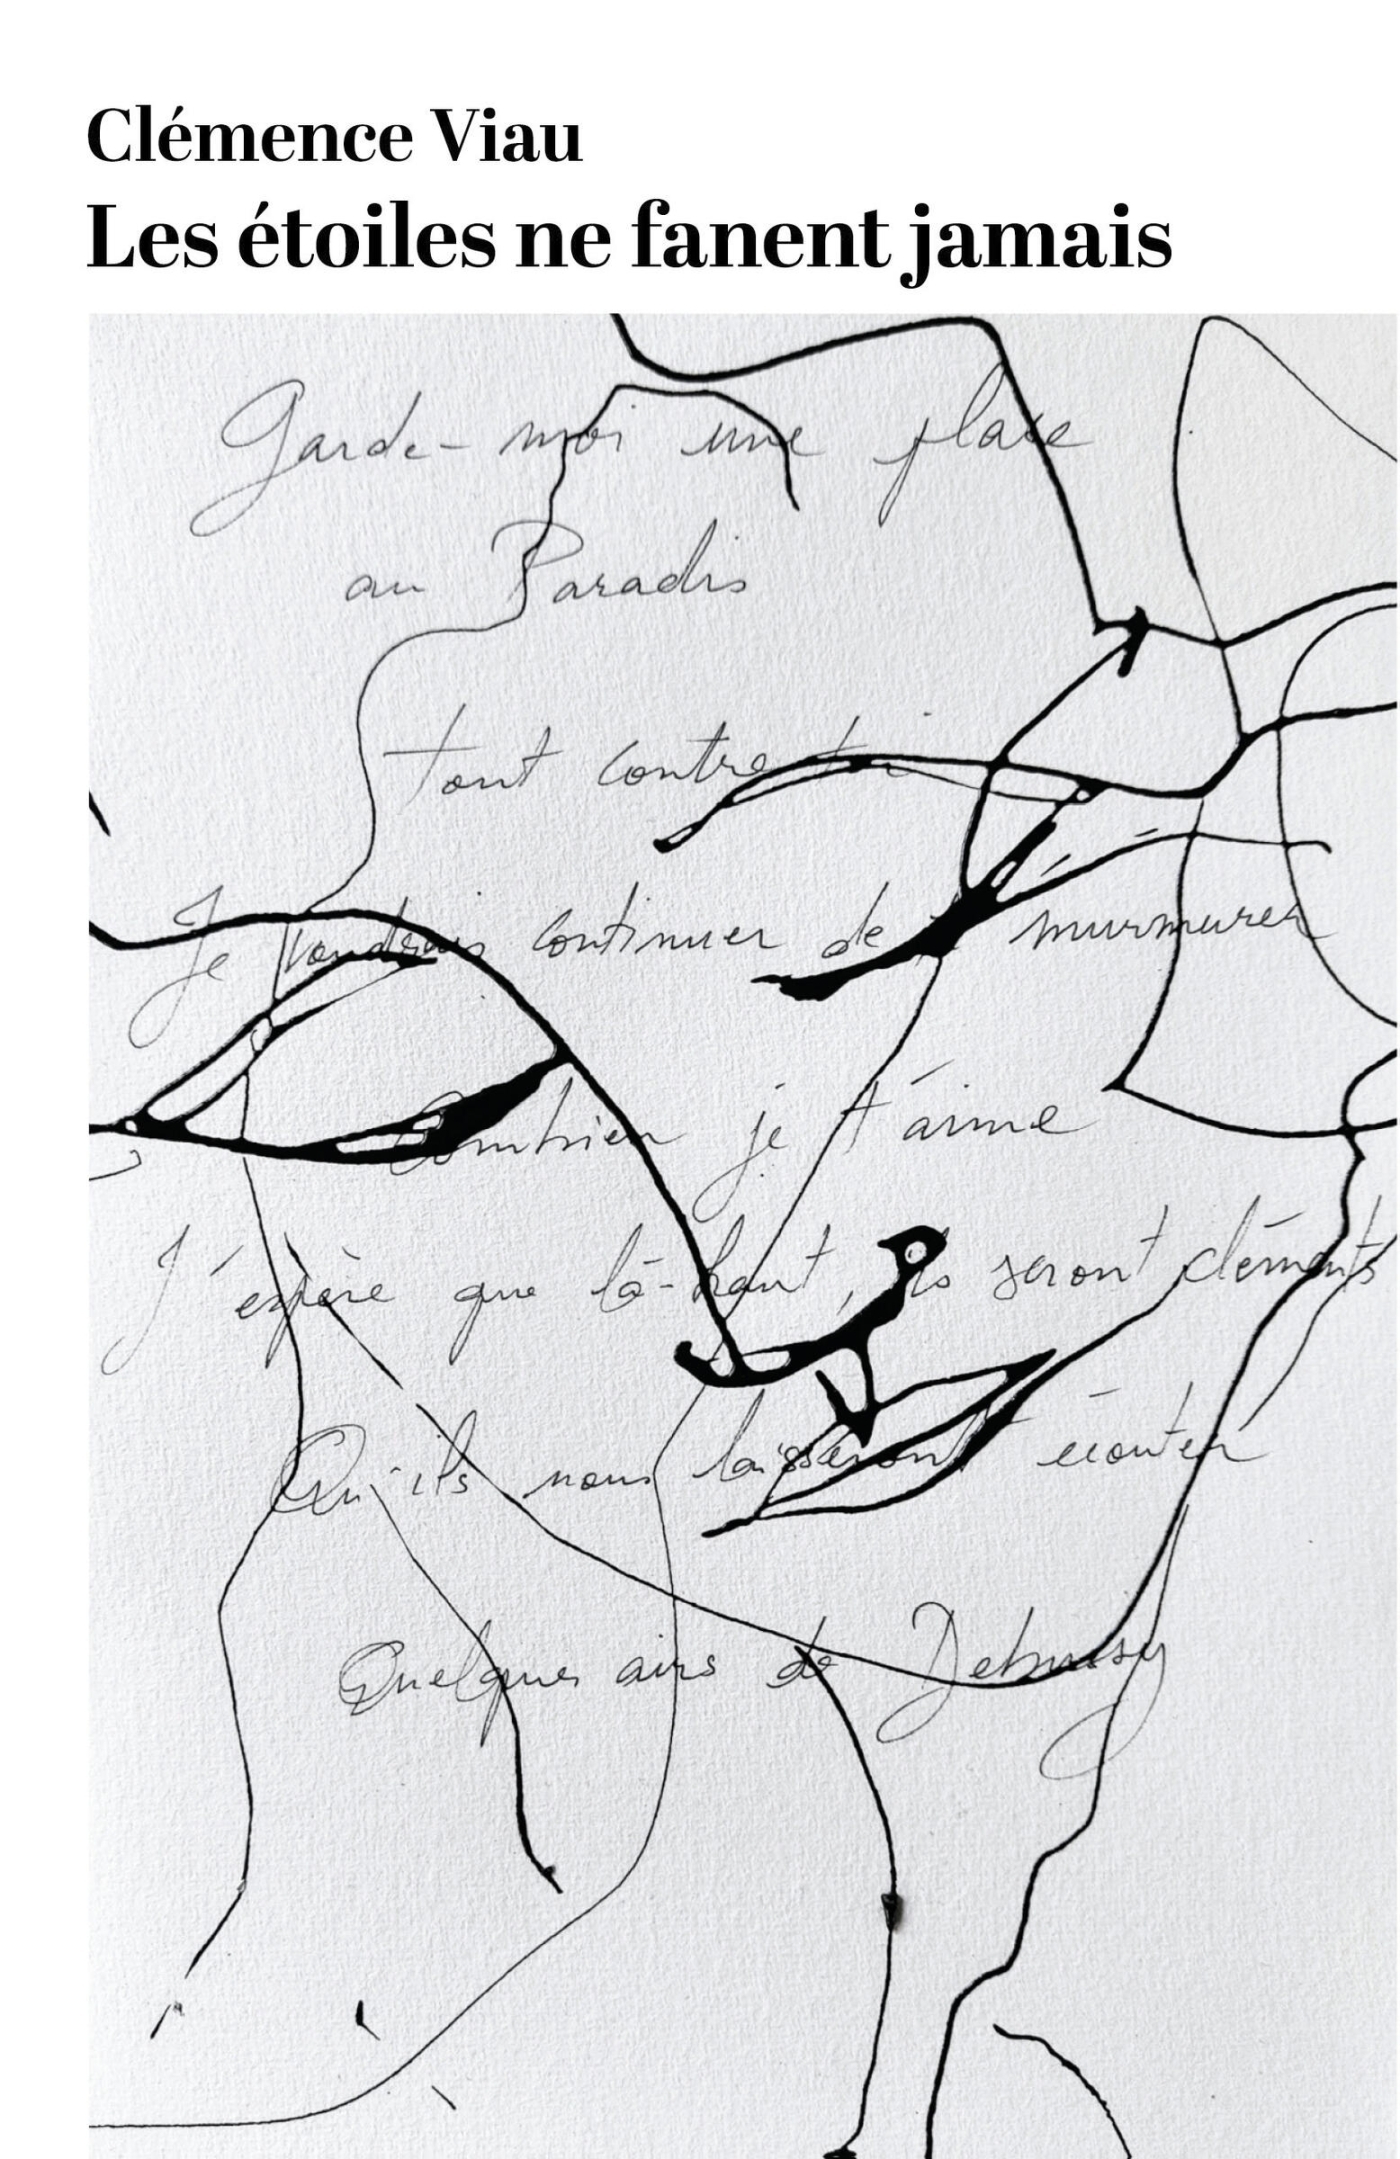 Clémence Viau
Les étoiles ne fanent jamais
Garde-moi une place
au Paradis
tout contre toi
Je voudrais continuer de te murmurer
Combien je t'aime
J'espère que là-haut, ils seront cléments
Qu'ils nous laisseront écouter
Quelques airs de Debussy